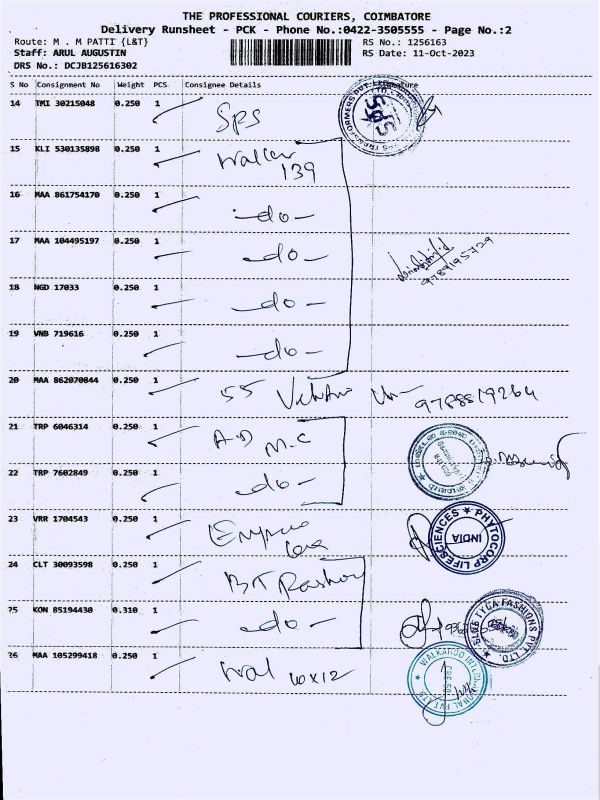 THE PROFESSIONAL COURIERS, COIMBATORE
Delivery Runsheet - PCK - Phone No.:0422-3505555 - Page No.:2
Route: M . M PATTI {L&T}
RS No.: 1256163
Staff: ARUL AUGUSTIN
RS Date: 11-Oct-2023
DRS No.: DCJB125616302
S No Consignment No Weight PCS Consignee Details
14 TMI 30215048 0.250 1 SPS
15 KLI 530135898 0.250 1
139
16 MAA 861754170 0.250 1 -do-
17 MAA 104495197 0.250 1 -do-
9789195729
18 NGD 17033 0.250 1 -do-
19 VNB 719616 0.250 1 -do-
20 MAA 862070844 0.250 1 55 9788819264
21 TRP 6046314 0.250 1 A.D M.C
22 TRP 7602849 0.250 1 -do-
23 VRR 1704543 0.250 1
PHYTOCORP LIFESCIENCES
INDIA
24 CLT 30093598 0.250 1 BT
25 KON 85194430 0.310 1 -do-
BLUE TYGA FASHIONS PVT. LTD.
26 MAA 105299418 0.250 1 Wal 10x12
WALKAROO INTERNATIONAL PVT LTD